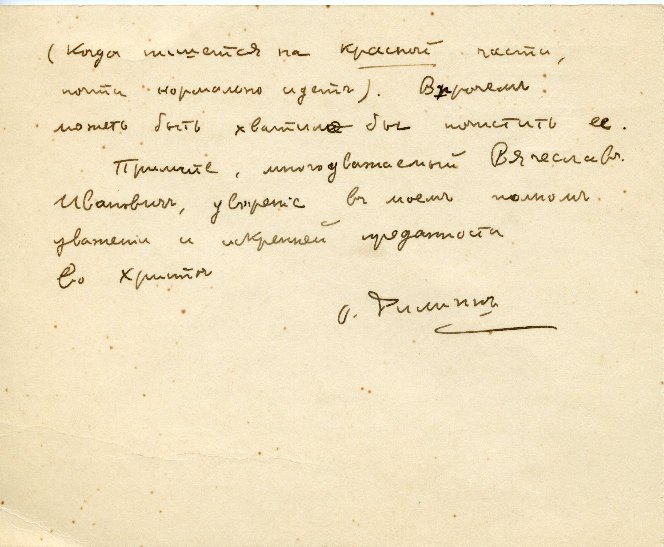 (Когда пишется на красной части,
почти нормально идетъ). Впрочемъ
можетъ быть хватило бы почистить ее.
Примите, многоуважаемый Вячеславъ
Ивановичъ, уверенiе въ моемъ полномъ
уважении и искренней преданности
Во Христѣ
о.